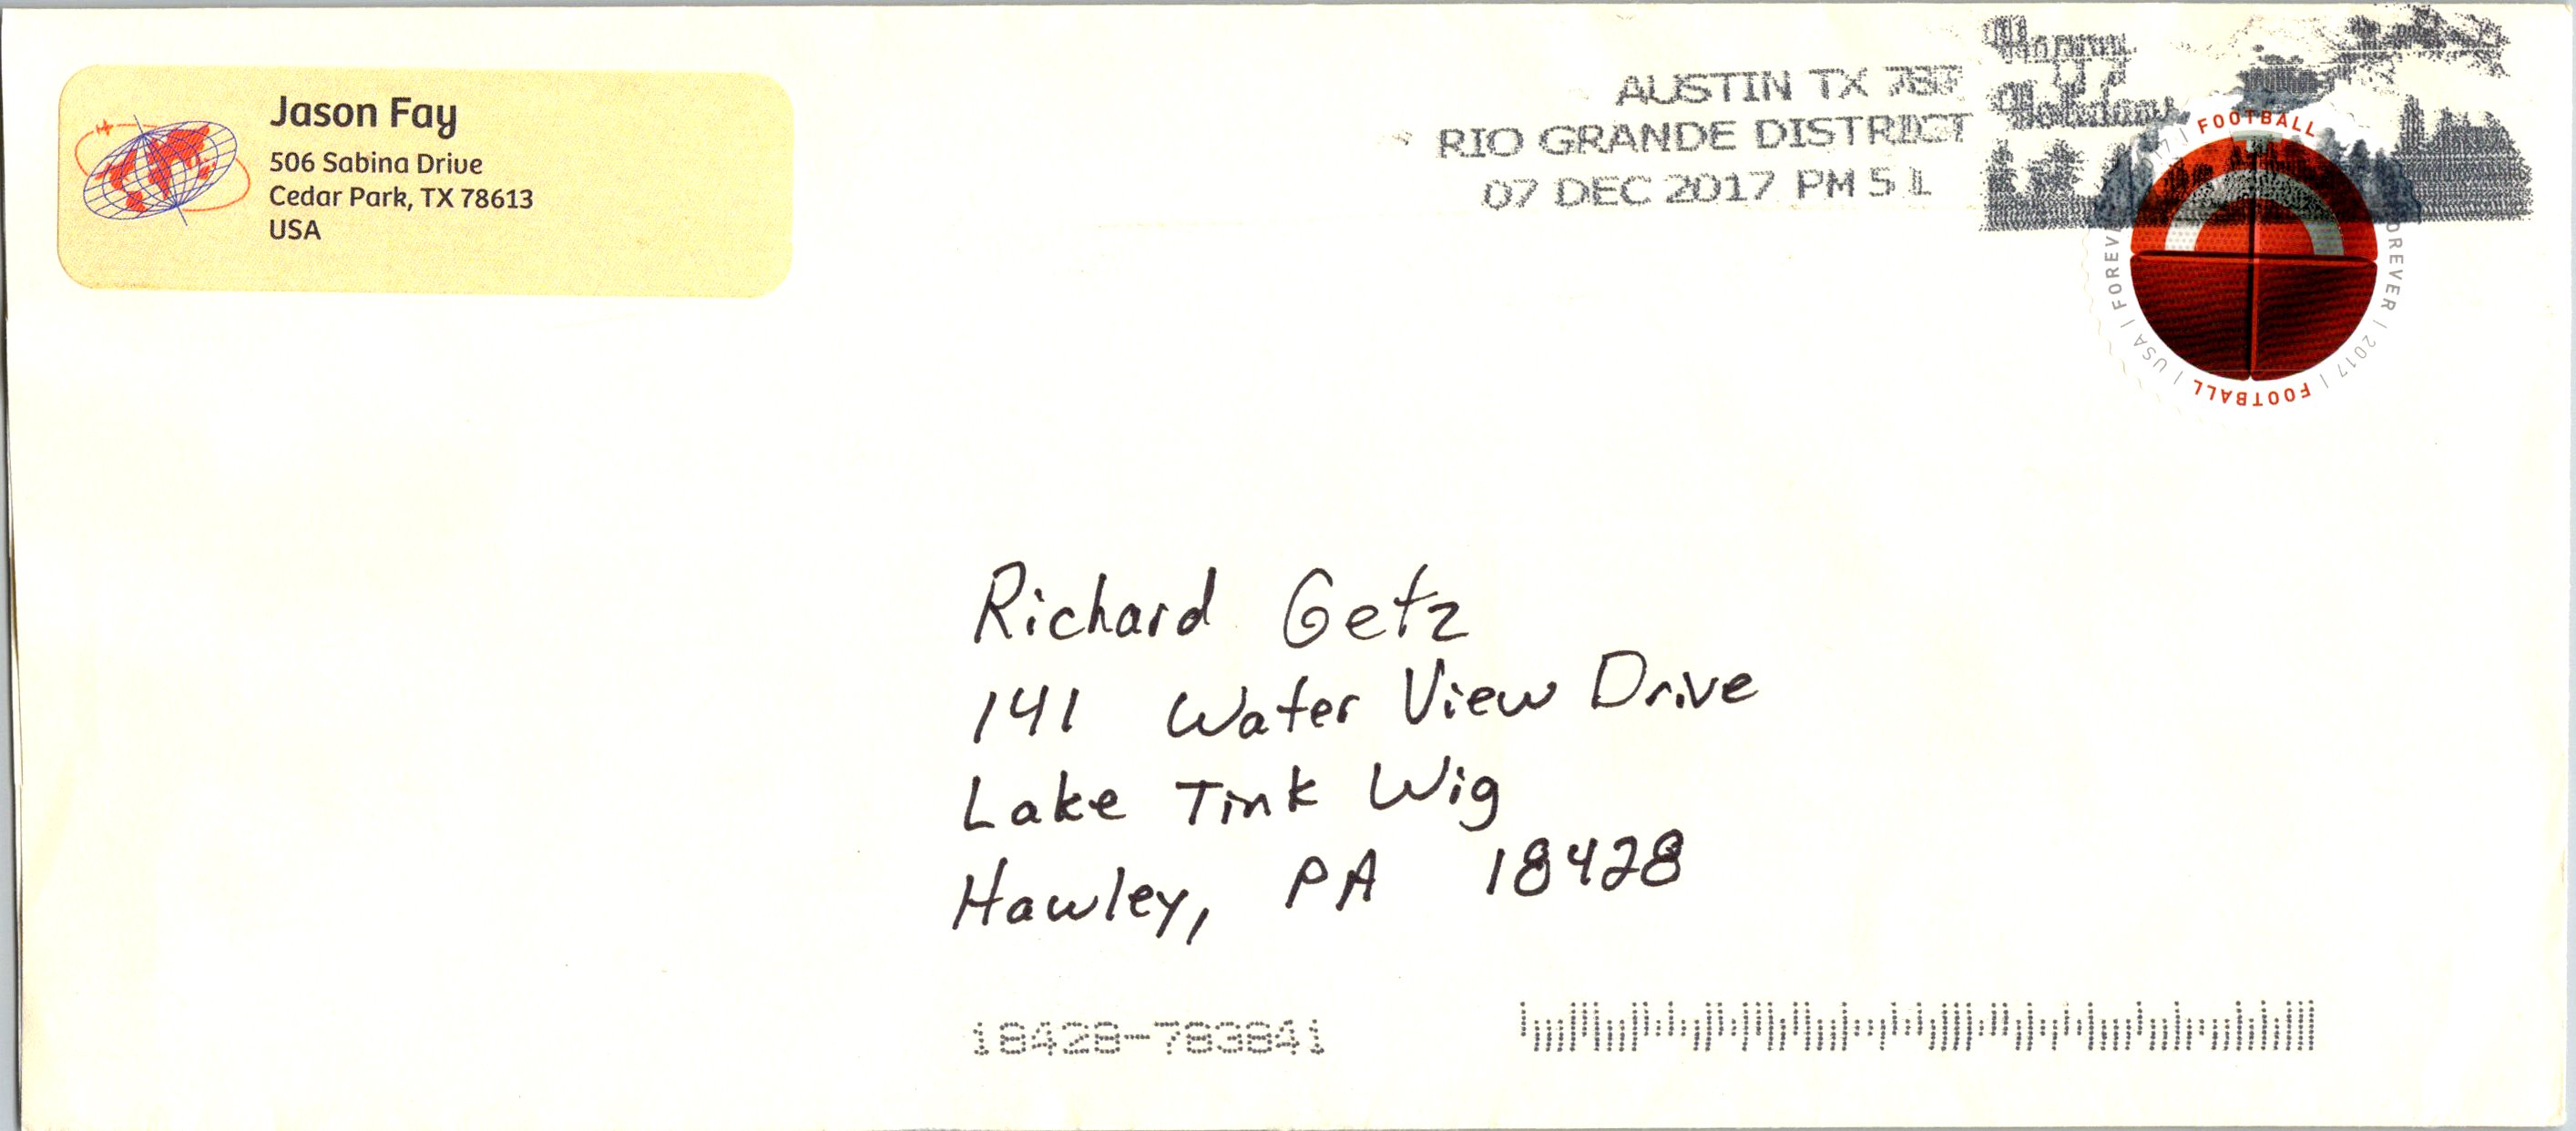 Jason Fay
506 Sabina Drive
Cedar Park, TX 78613
USA
AUSTIN TX
RIO GRANDE DISTRICT
07 DEC 2017 PM 5 L
Happy
Holidays
FOOTBALL
FOREVER | 2017 | FOOTBALL | USA | FOREVER
Richard Getz
141 Water View Drive
Lake Tink Wig
Hawley, PA 18428
18428-783841